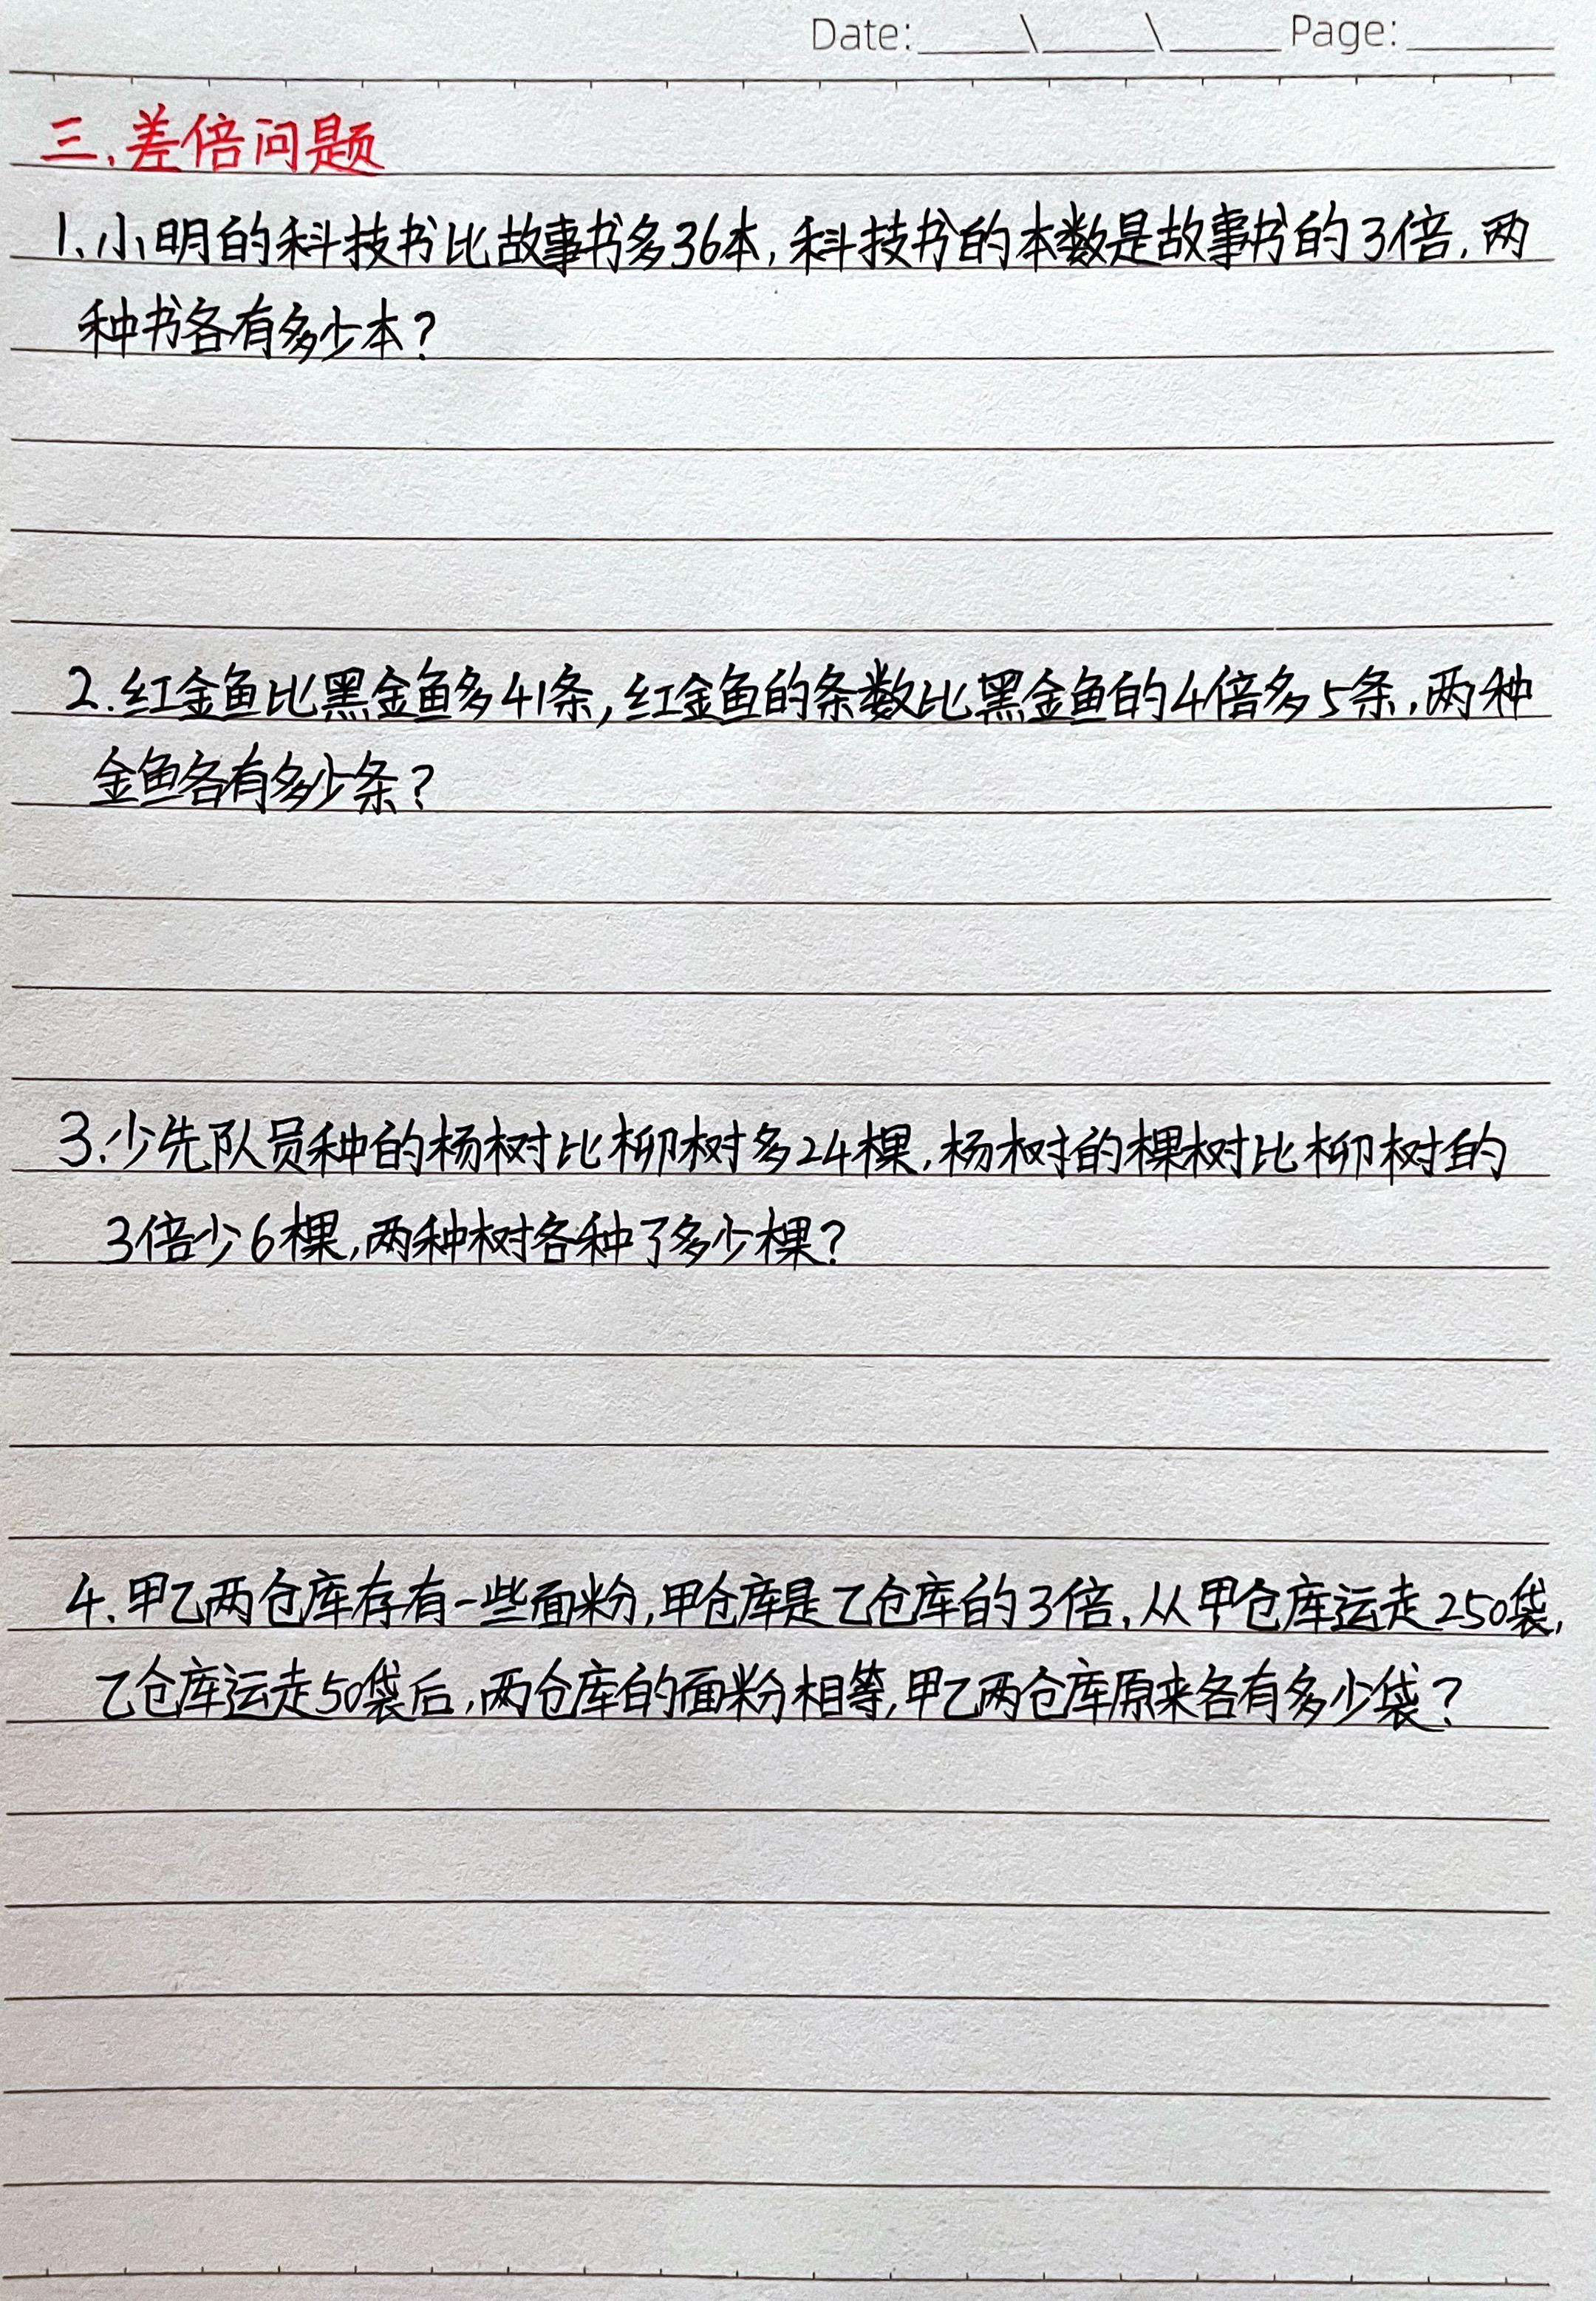 Date:_____\_____\_____Page:______
三.差倍问题
1.小明的科技书比故事书多36本,科技书的本数是故事书的3倍,两
种书各有多少本?
2.红金鱼比黑金鱼多41条,红金鱼的条数比黑金鱼的4倍多5条,两种
金鱼各有多少条?
3.少先队员种的杨树比柳树多24棵,杨树的棵树比柳树的
3倍少6棵,两种树各种了多少棵?
4.甲乙两仓库存有一些面粉,甲仓库是乙仓库的3倍,从甲仓库运走250袋,
乙仓库运走50袋后,两仓库的面粉相等,甲乙两仓库原来各有多少袋?